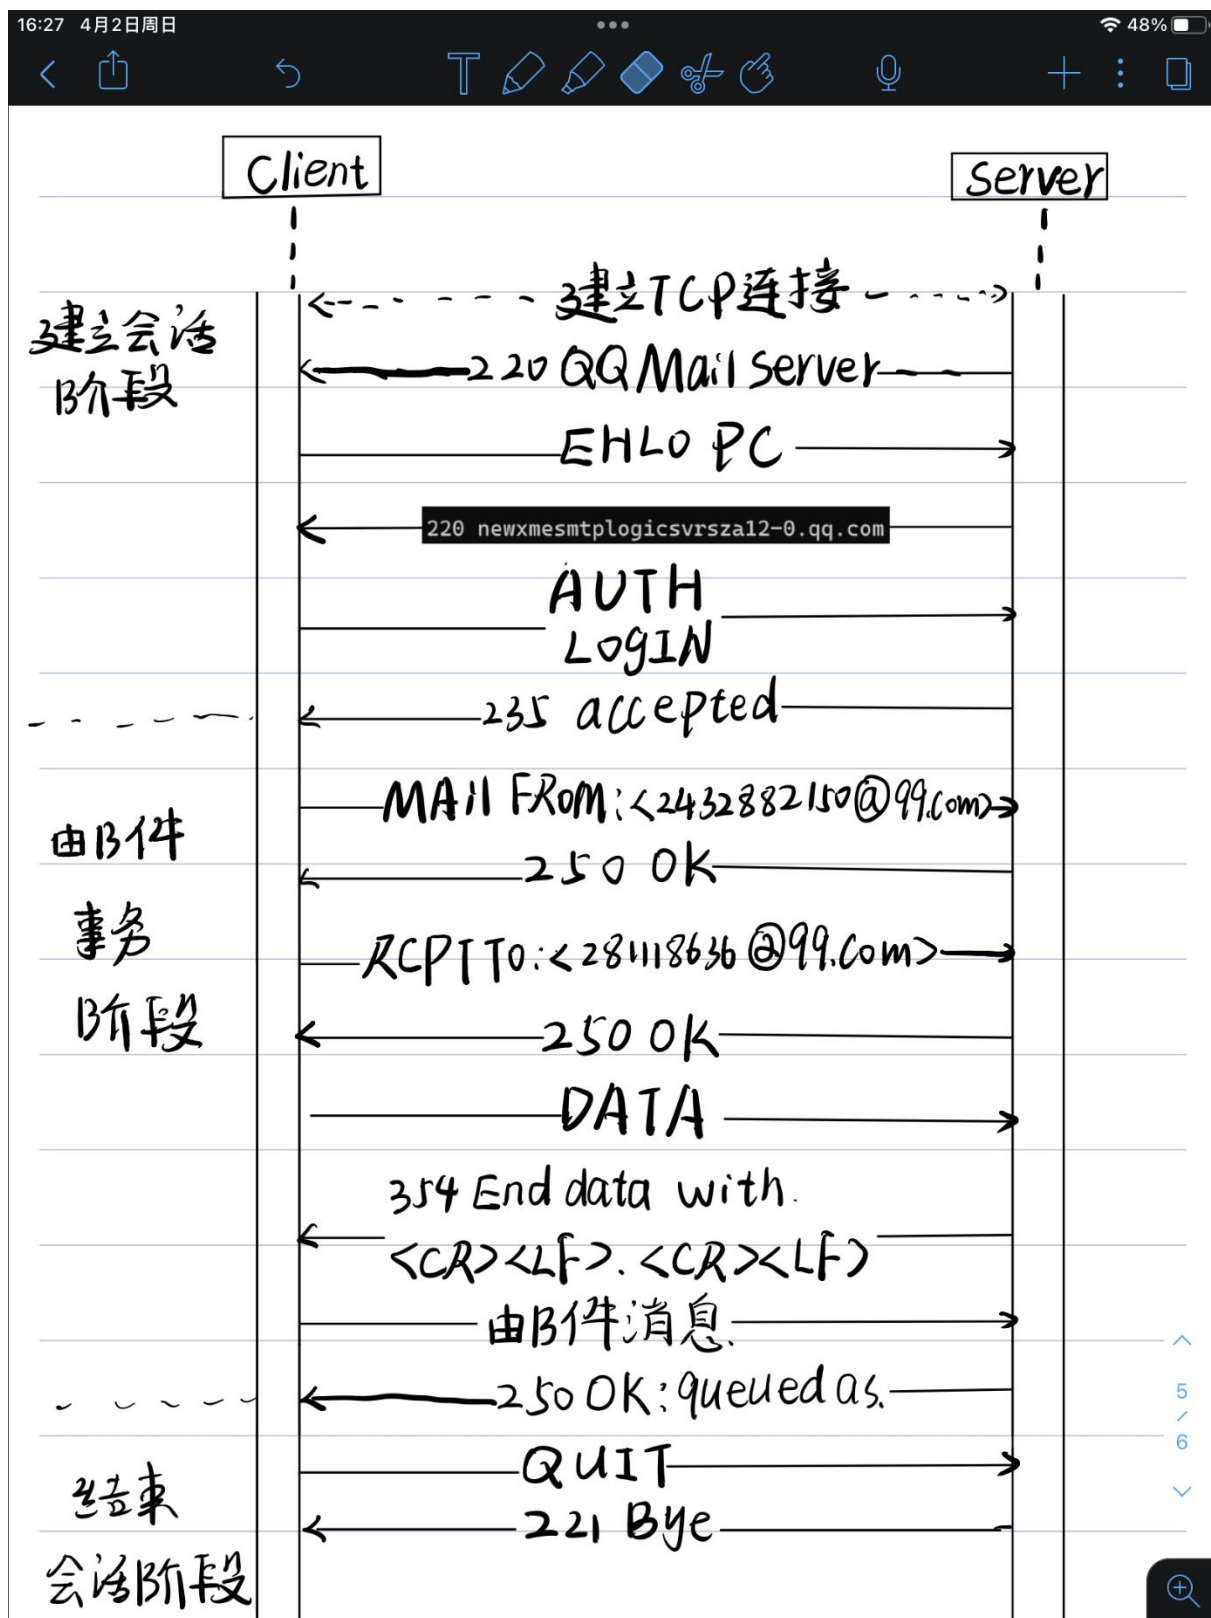 16:27 4月2日周日
48%
Client
Server
建立TCP连接
建立会话
阶段
220 QQ Mail Server
EHLO PC
220 newxmesmtplogicsvrsza12-0.qq.com
AUTH
LOgIN
235 accepted
MAil FRom:<2432882150@qq.com>
邮件
事务
阶段
250 OK
RCPT To:<281118636@qq.com>
250 OK
DATA
354 End data with.
<CR><LF>.<CR><LF>
邮件消息.
250 OK: queued as.
5
/
6
QUIT
结束
会话阶段
221 Bye